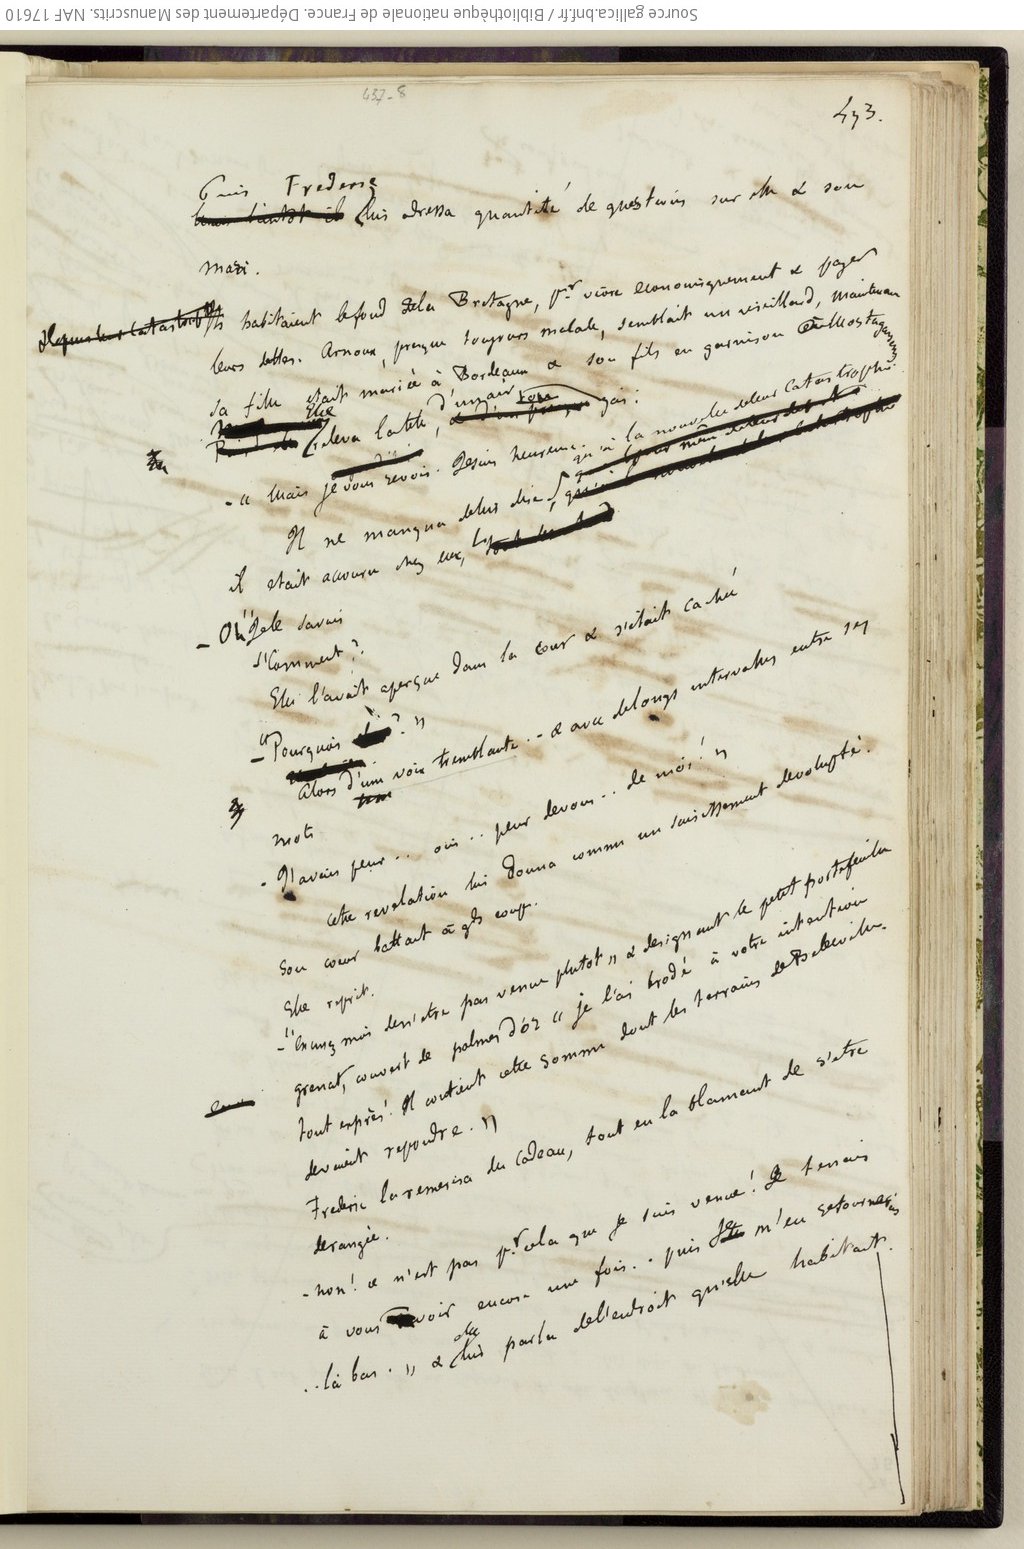 Source gallica.bnf.fr / Bibliothèque nationale de France. Département des Manuscrits. NAF 17610
437-8
493.
Puis Frederic
lui adressa quantité de questions sur elle & son
mari.
Ils habitaient le fond de la Bretagne, pr vivre economiquement & payer
leurs dettes. Arnoux, presque toujours malade, semblait un vieillard, maintenant
sa fille etait mariée à Bordeaux & son fils en garnison à Mostaganem
Elle releva la tete, d'un air gai:
- « Mais je vous revois. Je suis heureuse.
Il ne manqua de lui dire qu'à la nouvelle de leur catastrophe
il etait accouru chez eux,
- Oh! Je le savais
- Comment?
Elle l'avait aperçue dans la cour & s'etait caché
- "Pourquoi? »
Alors d'une voix tremblante. - & avec de longs intervalles entre ses
mots
- J'avais peur.. oui.. peur de vous.. de moi! »
cette revelation lui donna comme un saisissement de volupté.
Son coeur battait à gds coups.
Elle reprit.
- "Excusez moi de n'etre pas venue plutot » & designant le petit portefeuille
grenat, couvert de palmes d'or « je l'ai brodé à votre intention
tout exprès! Il contient cette somme dont les terrains de Belleville
devaient repondre. »
Frederic la remercia du cadeau, tout en la blamant de s'etre
derangée.
- non! ce n'est pas pr cela que je suis venue! Je tenais
à vous revoir encore une fois.. puis je m'en retournerais
..là bas. » & elle lui parla de l'endroit qu'elle habitait.